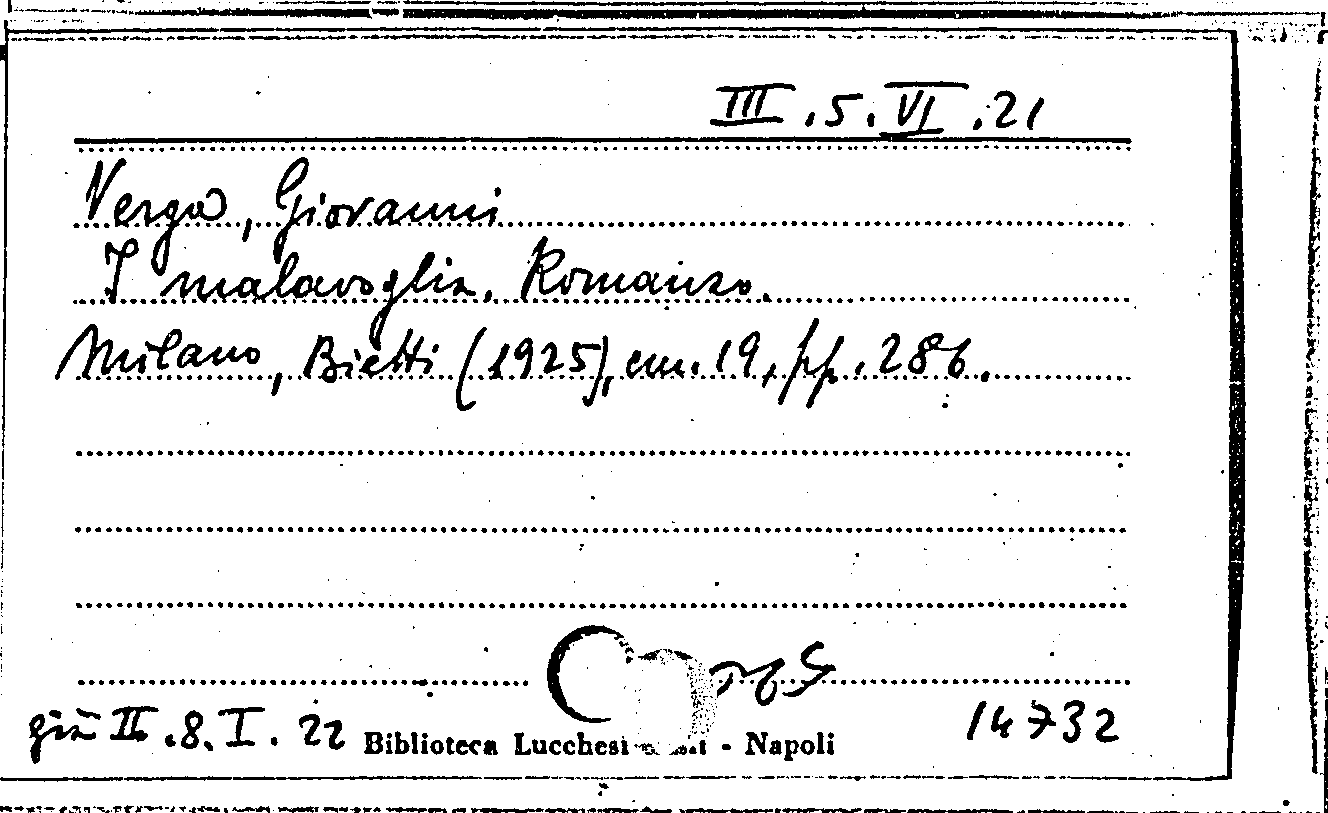 III.5.VI.21
Verga, Giovanni
I malavoglia. Romanzo.
Milano, Bietti (1925), cm. 19, pp. 286.
già II.8.I.22
14732
Biblioteca Lucchesi - Napoli